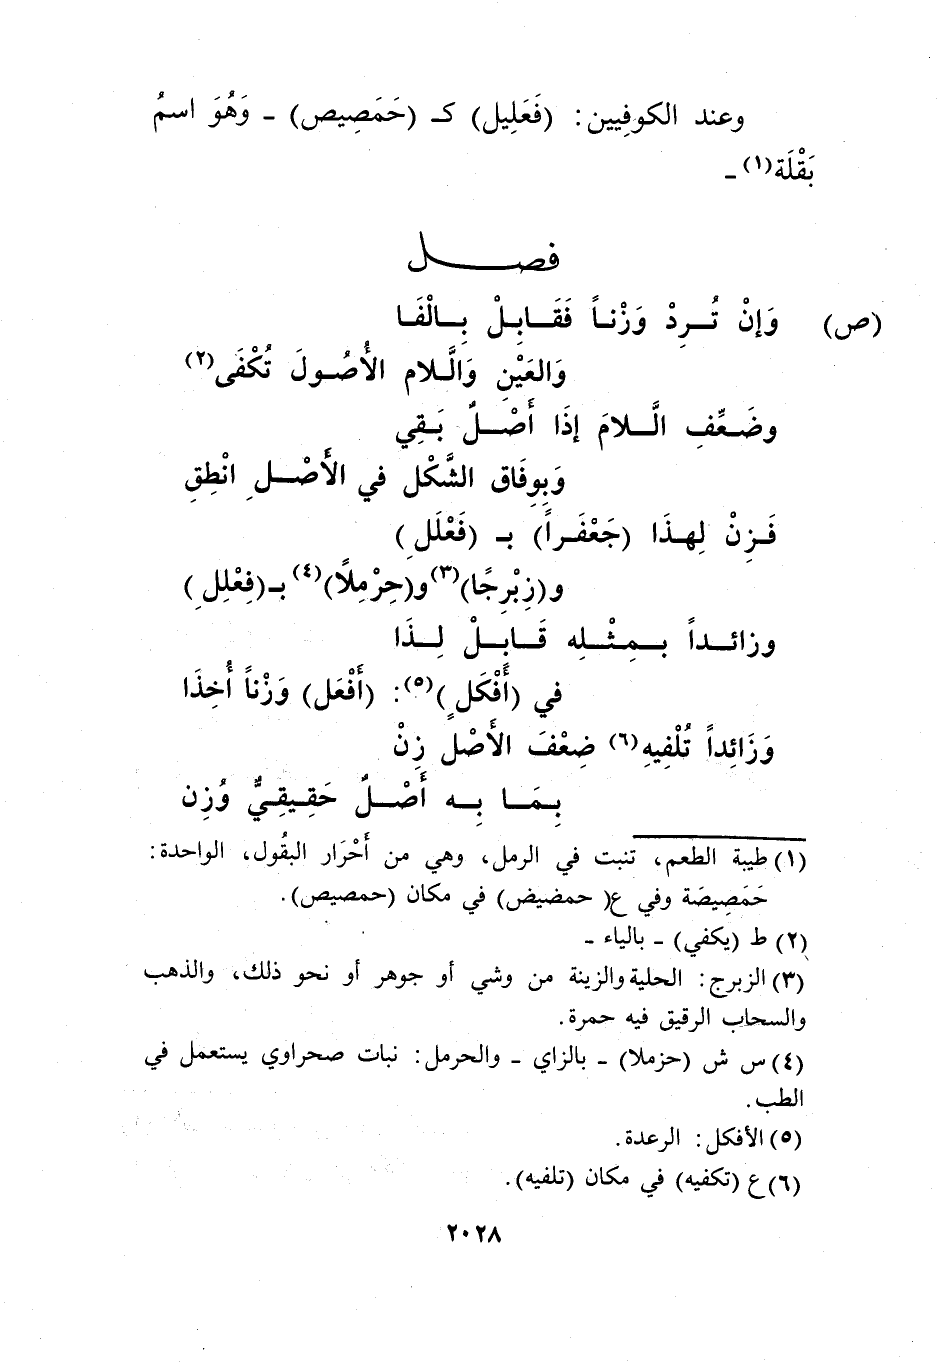 وعند الكوفِيين: (فَعَلِيل) كـ (حَمَصِيص) - وَهُوَ اسمُ
بَقْلَة(١) -
فصــل
(ص) وَإِنْ تُــرِدْ وَزْنـاً فَقَـابِـلْ بِـالْفَـا
وَالعَيْنِ وَالَّـلامِ الأُصُـولَ تُكْفَى(٢)
وضَـعِّفِ الَّـلامَ إذَا أَصْـلٌ بَـقِي
وَبِوِفَاق الشَّكْلِ في الأَصْـلِ انْطِقِ
فَـزِنْ لِهـذَا (جَعْفَـراً) بـ (فَعْلَلِ)
و(زِبْرِجًا)(٣)و(حِرْمِلًا)(٤) بـ(فِعْلِلِ)
وزائـداً بـمِـثْـلِه قَـابِـلْ لِـذَا
في (أَفْكَلٍ)(٥): (أَفْعَل) وَزْناً أُخِذَا
وَزَائِداً تُلْفِيهِ(٦) ضِعْفَ الأَصْلِ زِنْ
بِـمَـا بِـه أَصْـلٌ حَقِـيقِـيٌّ وُزِن
(١) طيبة الطعم، تنبت في الرمل، وهي من أَحْرَار البقُول، الواحدة:
حَمَصِيصَة وفي ع( حمضيض) في مكان (حمصيص).
(٢) ط (يكفي) - بالياء -
(٣) الزبرج: الحلية والزينة من وشي أو جوهر أو نحو ذلك، والذهب
والسحاب الرقيق فيه حمرة.
(٤) س ش (حزملا) - بالزاي - والحرمل: نبات صحراوي يستعمل في
الطب.
(٥) الأفكل: الرعدة.
(٦) ع (تكفيه) في مكان (تلفيه).
٢٠٢٨